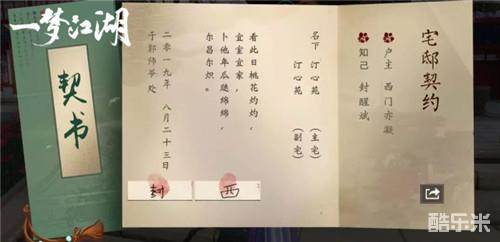 一梦江湖
契书
宅邸契约
户主 西门亦凝
知己 封醒斌
名下 汀心苑 (主宅)
汀心苑 (副宅)
看此日桃花灼灼，
宜室宜家，
卜他年瓜瓞绵绵，
尔昌尔炽。
二零一九年 八月二十三日
于郭师爷处
西
封
酷乐米